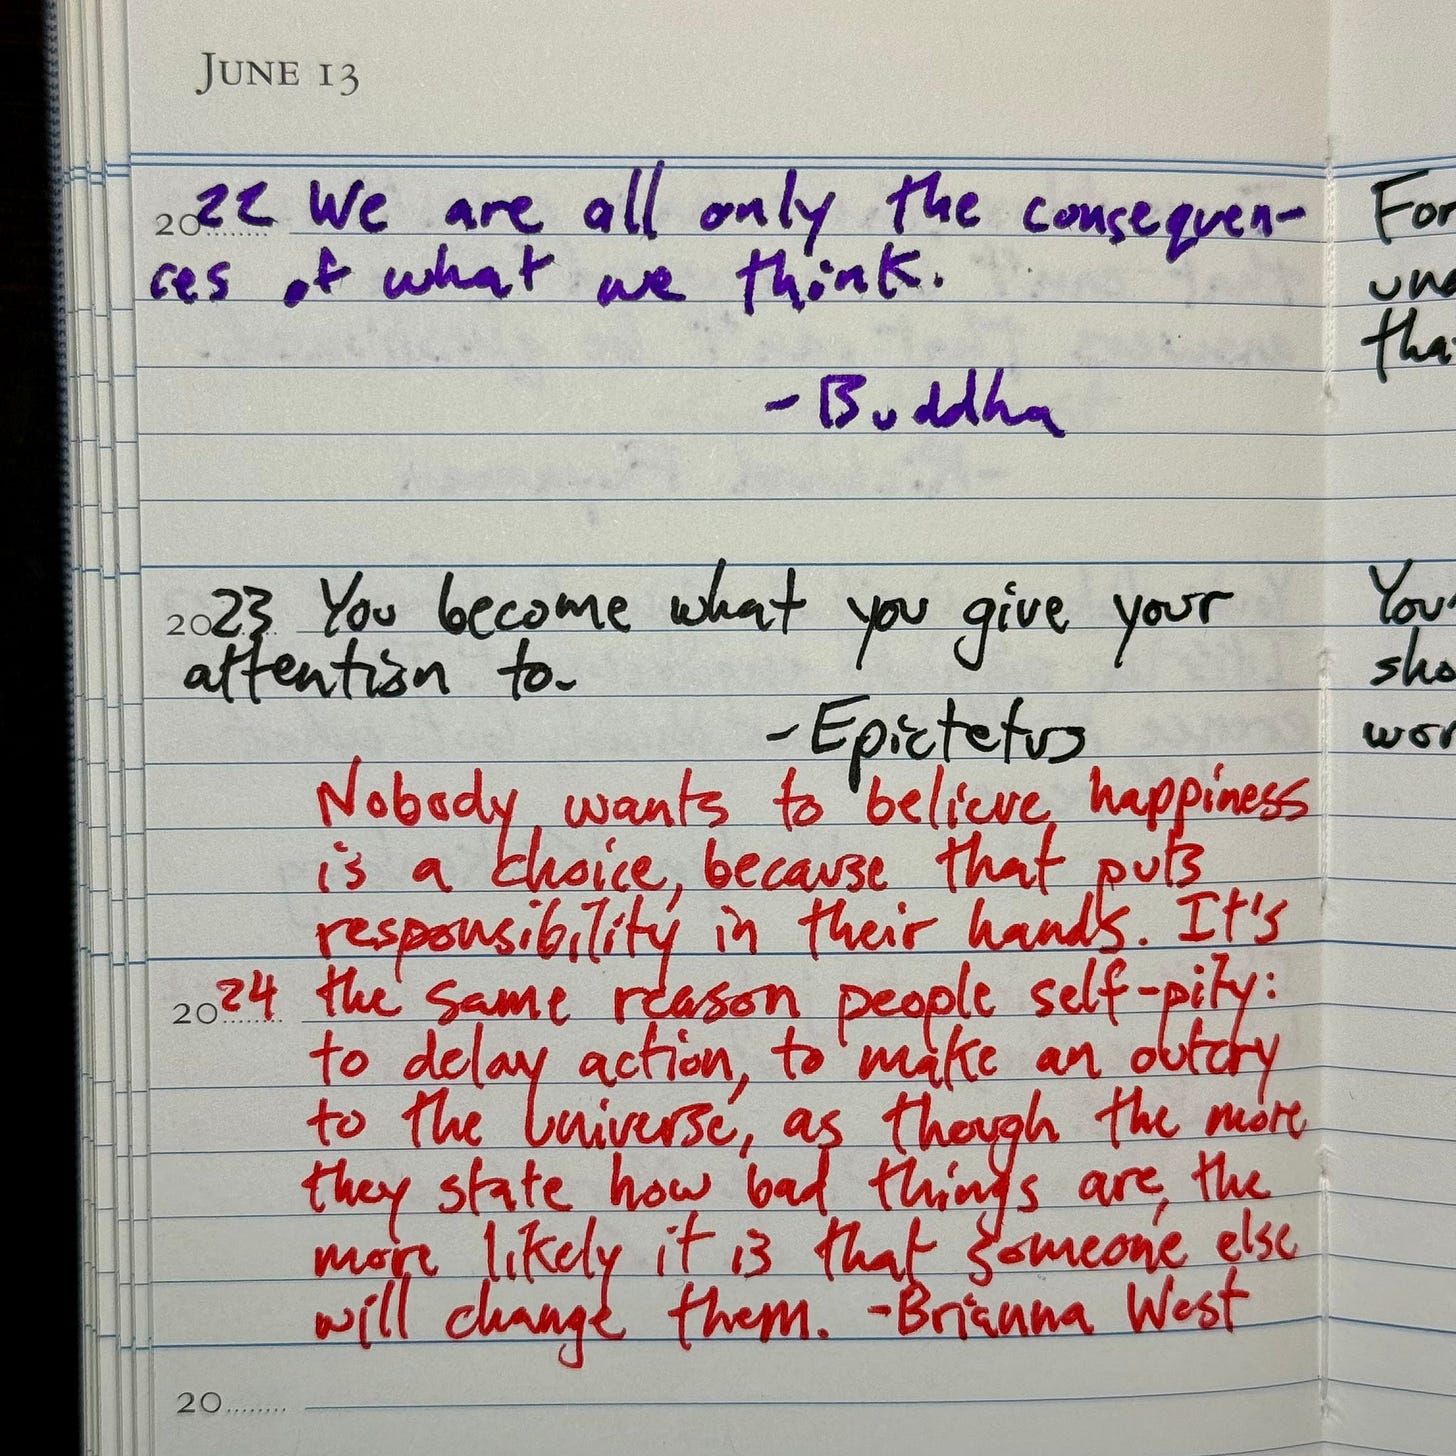 JUNE 13
2022 We are all only the consequen-
ces of what we think.
-Buddha
2023 You become what you give your
attention to.
-Epictetus
Nobody wants to believe happiness
is a choice, because that puts
responsibility in their hands. It's
2024 the same reason people self-pity:
to delay action, to make an outcry
to the universe, as though the more
they state how bad things are, the
more likely it is that someone else
will change them. -Brianna West
20........
For
You